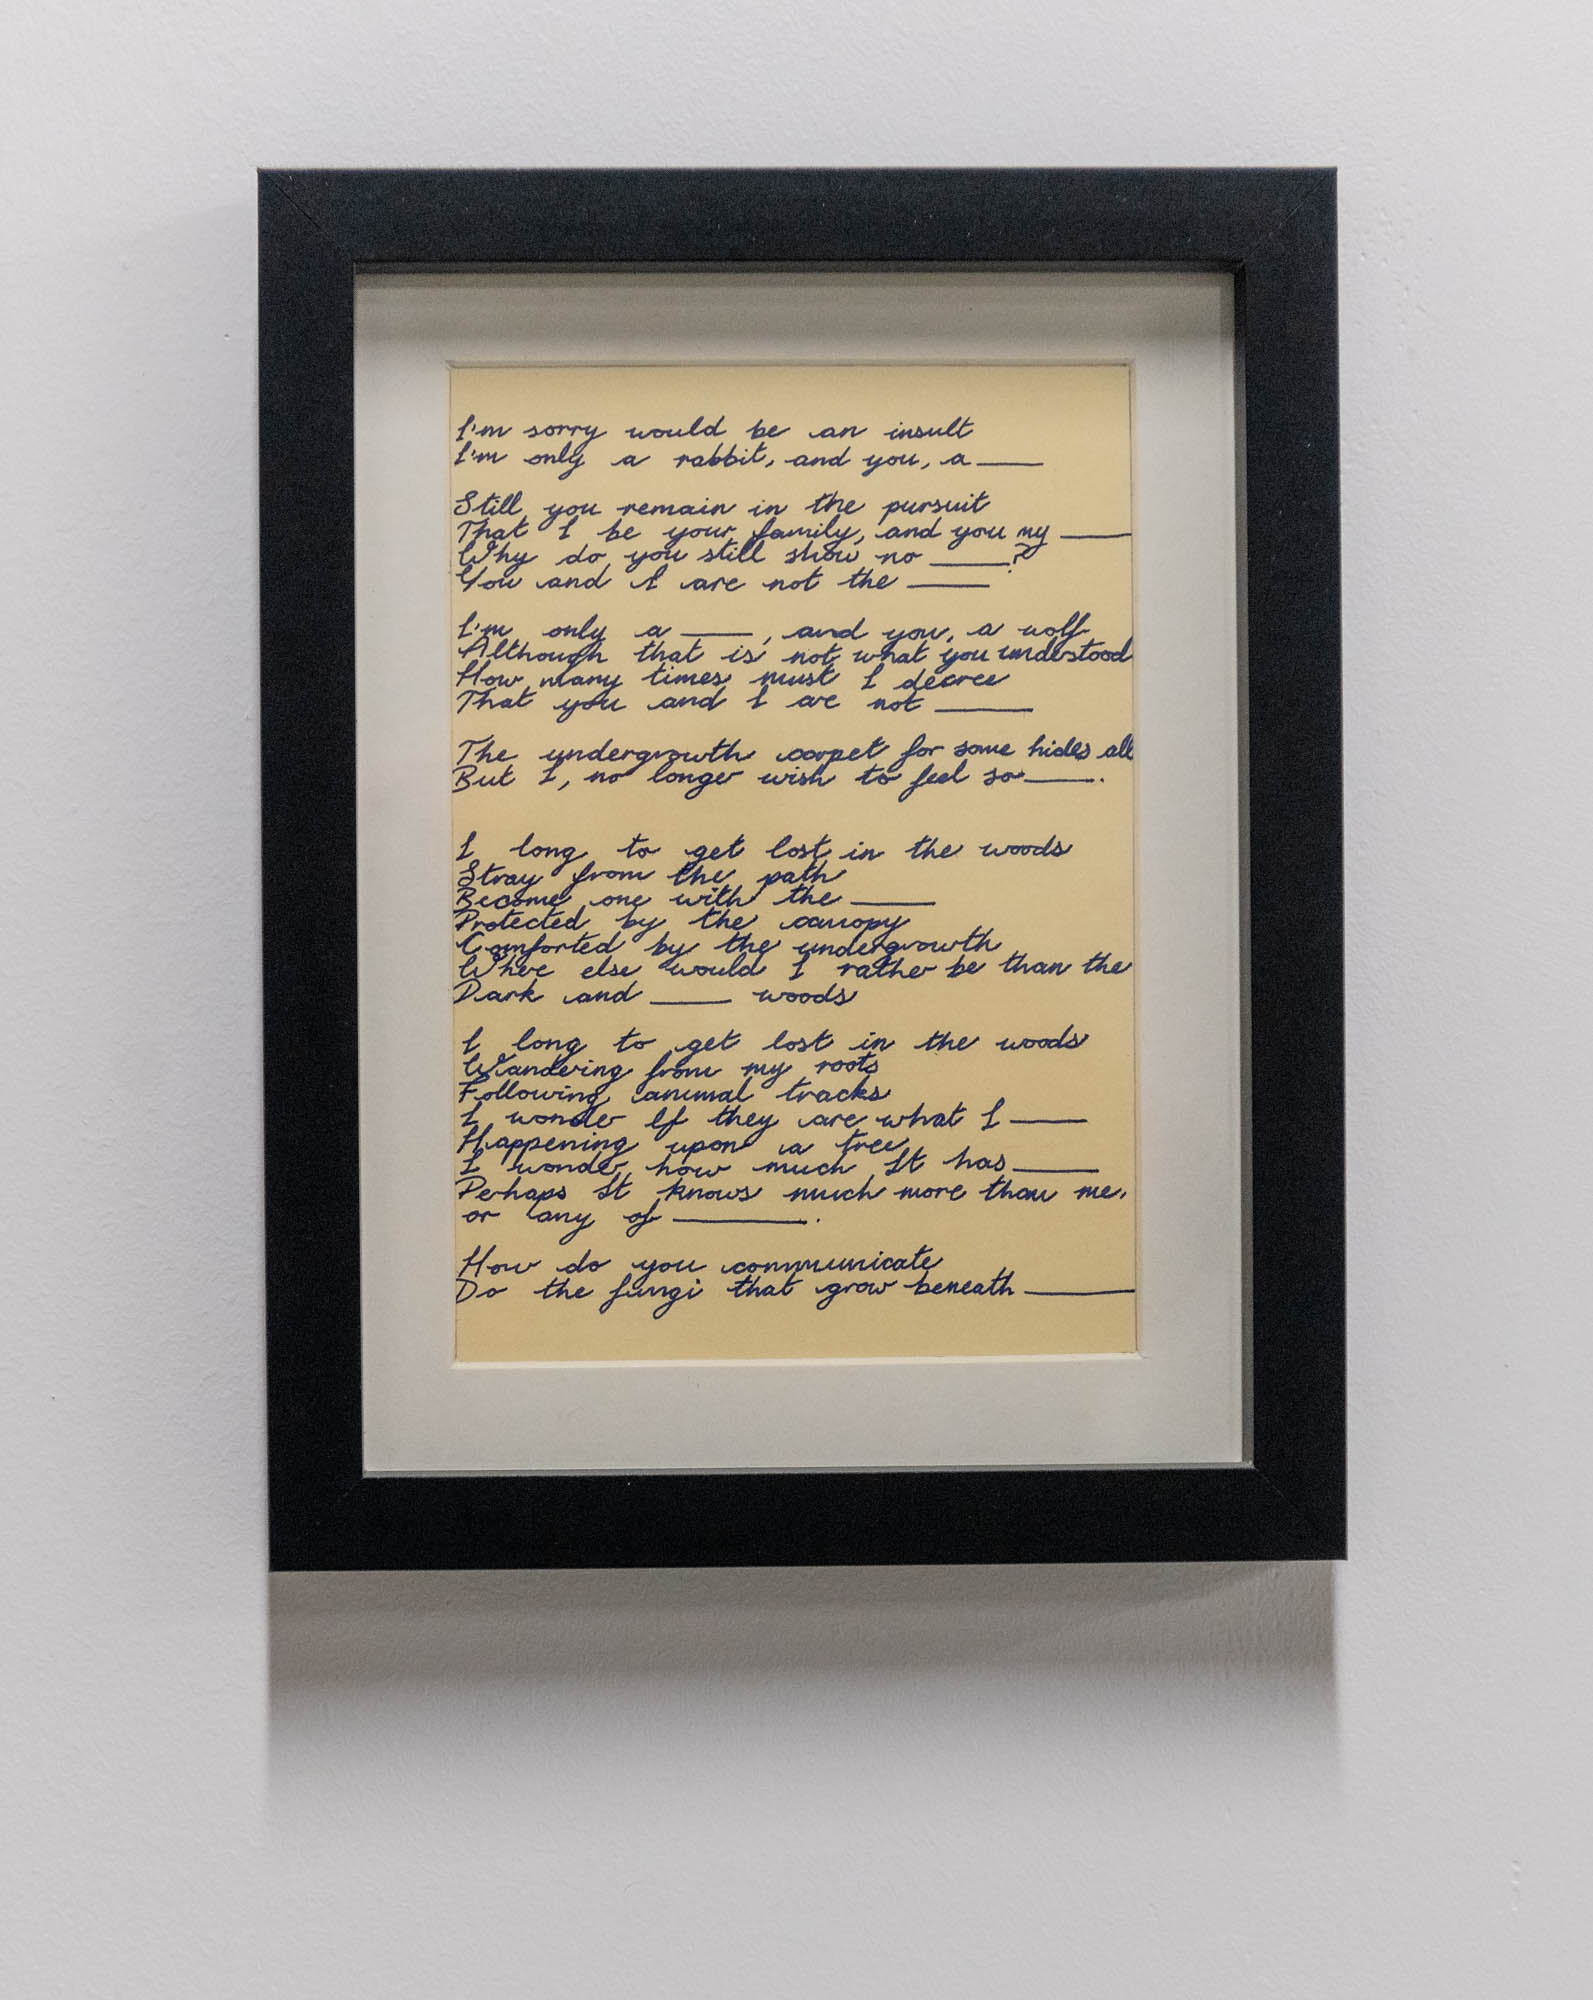 I'm sorry would be an insult
I'm only a rabbit, and you, a ____
Still you remain in the pursuit
That I be your family, and you my ____
Why do you still show no ____?
You and I are not the ____
I'm only a ____, and you, a wolf
Although that is not what you understood
How many times must I decree
That you and I are not ____
The undergrowth carpet for some hides all
But I, no longer wish to feel so ____.
I long to get lost in the woods
Stray from the path
Become one with the ____
Protected by the canopy
Comforted by the undergrowth
Where else would I rather be than the
Dark and ____ woods
I long to get lost in the woods
Wandering from my roots
Following animal tracks
I wonder If they are what I ____
Happening upon a tree
I wonder how much It has ____
Perhaps It knows much more than me,
or any of ____.
How do you communicate
Do the fungi that grow beneath ____